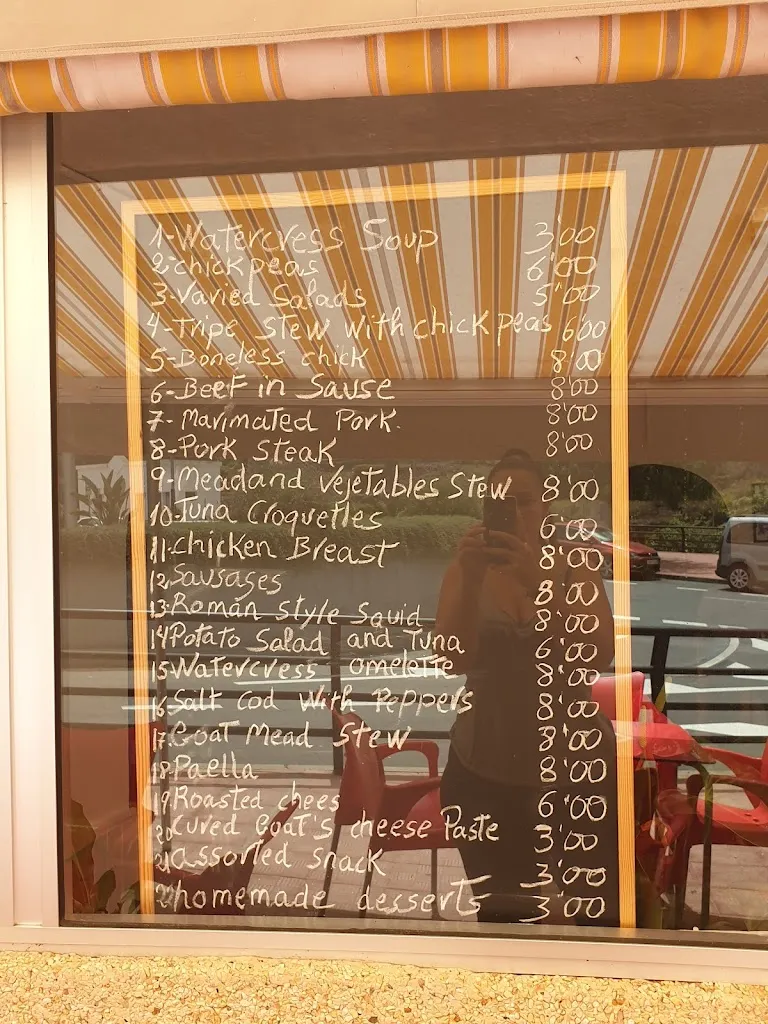 1-Watercress Soup 3'00
2-chick peas 6'00
3-Varied Salads 5'00
4-Tripe stew with chick peas 6'00
5-Boneless chick 8'00
6-Beef in Sause 8'00
7-Marimated Pork. 8'00
8-Pork Steak 8'00
9-Meadand Vejetables Stew 8'00
10-Tuna Croquettes 6'00
11-chicken Breast 8'00
12-Sausages 8'00
13-Roman style Squid 8'00
14-Potato Salad and Tuna 6'00
15-Watercress omelette 8'00
16-Salt cod with Peppers 8'00
17-Goat Mead Stew 8'00
18-Paella 8'00
19-Roasted chees 6'00
20-Cured Goat's cheese Paste 3'00
21-assorted snack 3'00
22-homemade desserts 3'00